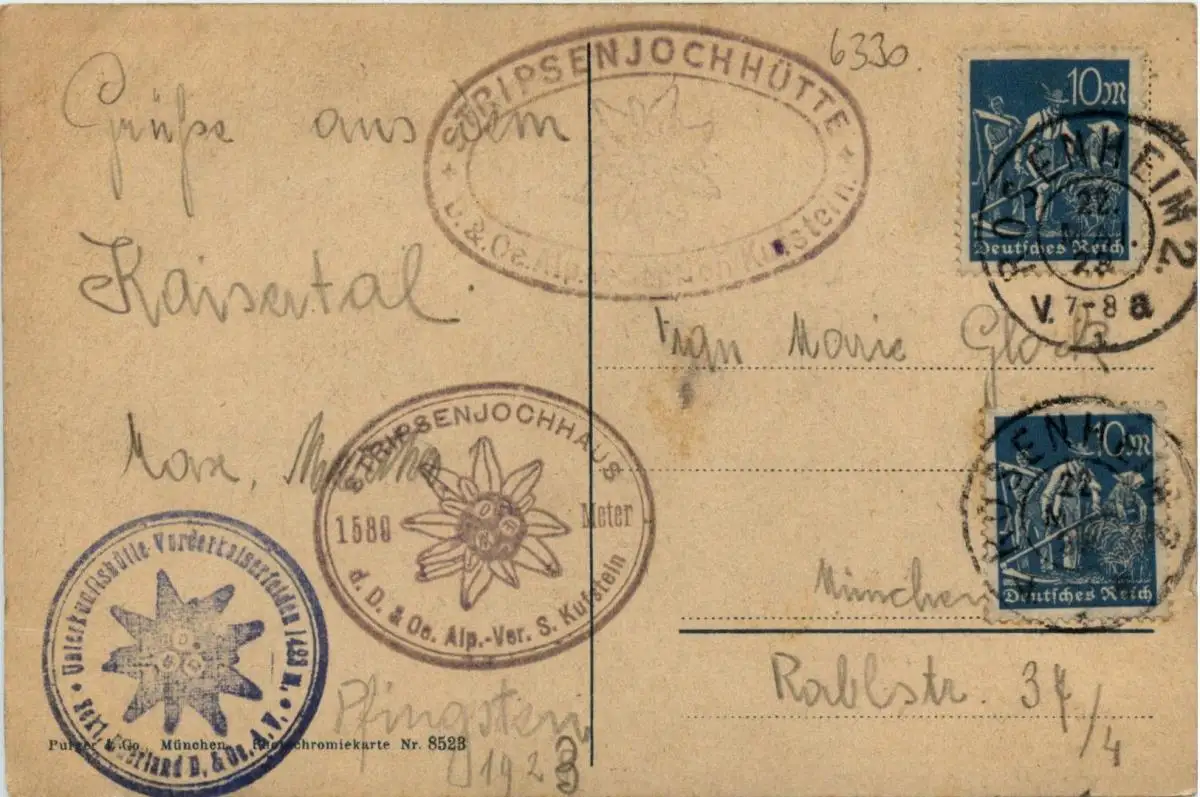 Grüße aus dem
Kaisertal.
Max,
Pfingsten
1923
STRIPSENJOCHHÜTTE
D. & Oe. Alp. Kufstein.
STRIPSENJOCHHAUS
1580 Meter
d. D. & Oe. Alp.-Ver. S. Kufstein
Unterkunftshütte Vorderkaiserfelden
Sekt. Oberland D. & Oe. A. V.
Purger & Co. München. Photochromiekarte Nr. 8523
6330.
10 m
Deutsches Reich
ROSENHEIM 2.
22.
23.
V. 7-8 a
Frau Marie
10 m
Deutsches Reich
ROSENHEIM
22
München
Rablstr. 37/4